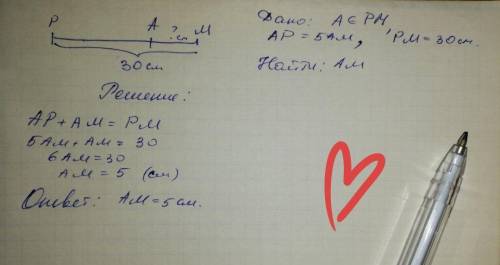 P A ? см M
30 см
Дано: A ∈ PM
AP = 5AM, PM = 30 см.
Найти: AM
Решение:
AP + AM = PM
5AM + AM = 30
6AM = 30
AM = 5 (см)
Ответ: AM = 5 см.